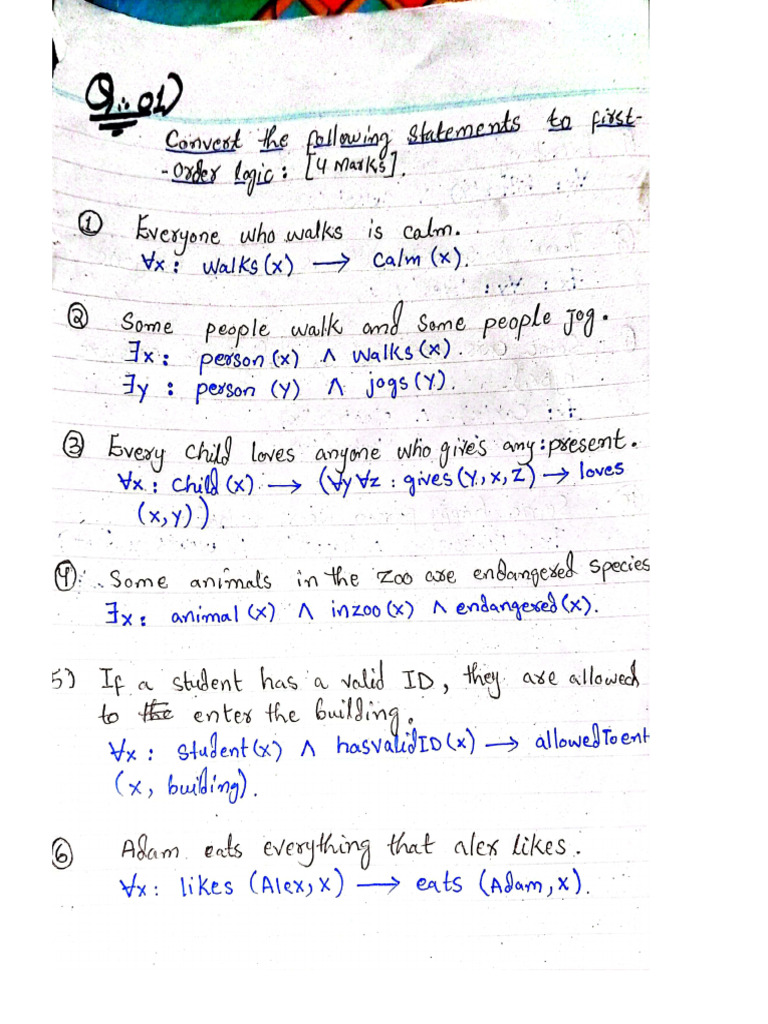 Q:01)
Convert the following statements to first-
-Order Logic: [4 Marks].
① Everyone who walks is calm.
∀x: walks(x) ⟶ calm(x).
② Some people walk and some people jog.
∃x: person(x) ∧ walks(x).
∃y: person(y) ∧ jogs(y).
③ Every child loves anyone who gives any present.
∀x: child(x) ⟶ (∀y∀z: gives(y,x,z) → loves
(x,y)).
④ Some animals in the zoo are endangered species
∃x: animal(x) ∧ inzoo(x) ∧ endangered(x).
5) If a student has a valid ID, they are allowed
to the enter the building.
∀x: student(x) ∧ hasvalidID(x) → allowedToent
(x, building).
⑥ Adam eats everything that alex likes.
∀x: likes (Alex, x) ⟶ eats (Adam, x).